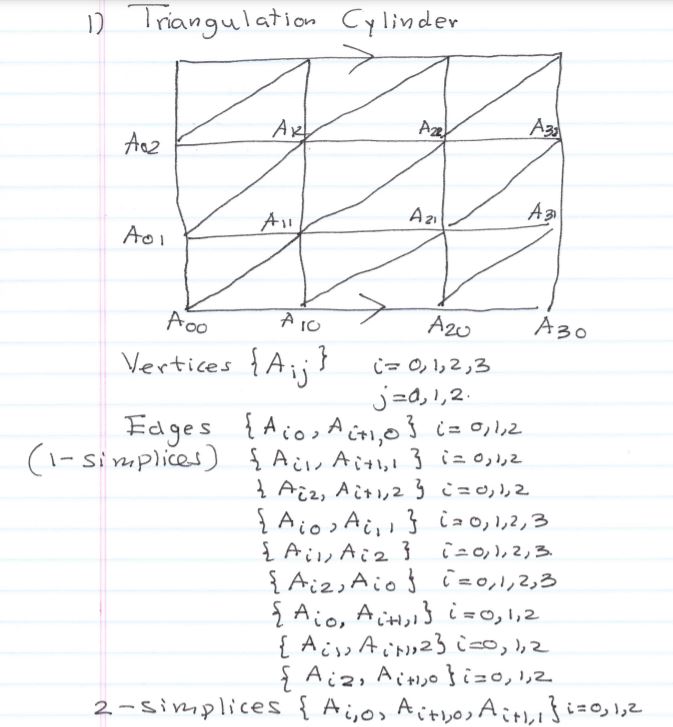 1) Triangulation Cylinder
A02 A12 A22 A32
A01 A11 A21 A31
A00 A10 A20 A30
Vertices {Aij} i=0,1,2,3
j=0,1,2.
Edges {Ai0, Ai+1,0} i=0,1,2
(1-simplices) {Ai1, Ai+1,1} i=0,1,2
{Ai2, Ai+1,2} i=0,1,2
{Ai0, Ai,1} i=0,1,2,3
{Ai1, Ai2} i=0,1,2,3.
{Ai2, Ai0} i=0,1,2,3
{Ai0, Ai+1,1} i=0,1,2
{Ai1, Ai+1,2} i=0,1,2
{Ai2, Ai+1,0} i=0,1,2
2-simplices {Ai,0, Ai+1,0, Ai+1,1} i=0,1,2